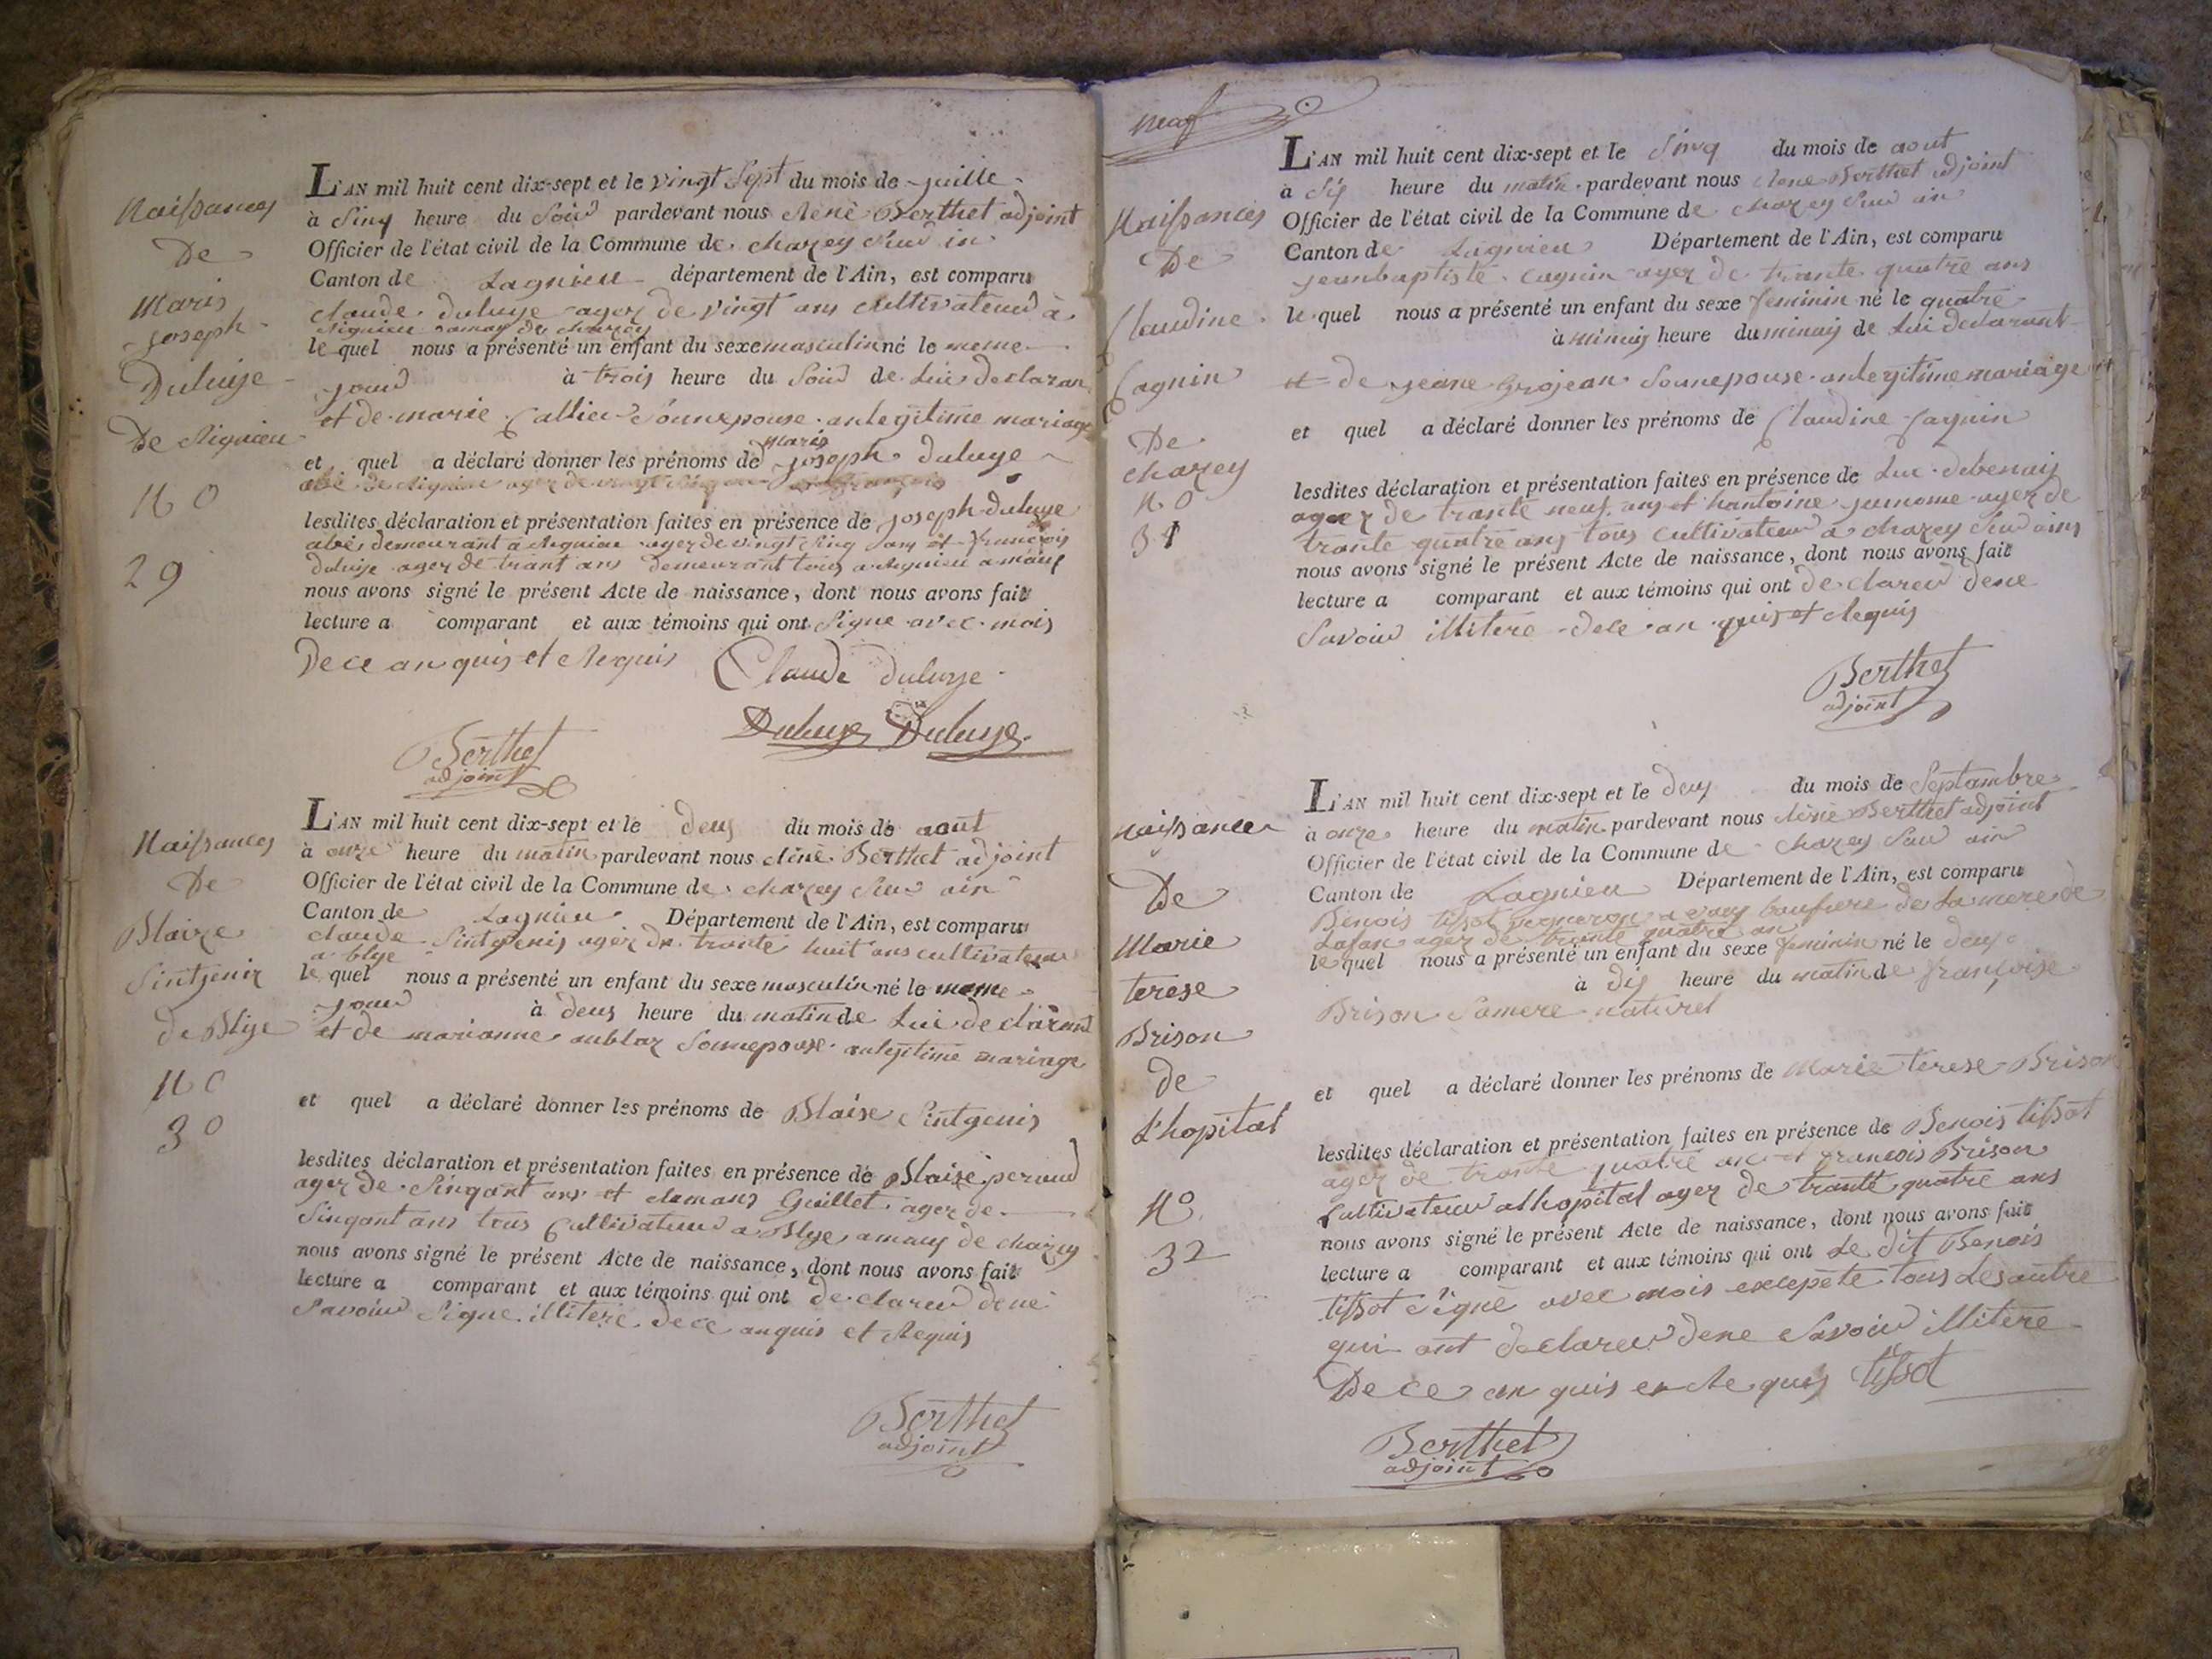 Naissances
De
Maris
joseph
Duluye
De Rignieu
No
29
L'AN mil huit cent dix-sept et le vingt Sept du mois de juille
à Sinq heure du Soir pardevant nous Rènè Berthet adjoint
Officier de l'état civil de la Commune de chazey Sur in
Canton de Lagnieu département de l'Ain, est comparu
claude duluye ager de vingt ans cultivateur à
Rignieu amay de chazey
le quel nous a présenté un enfant du sexe masculin né le meme
jour à trois heure du Soir de Lui declaran
et de marie Callier Sonnepouse anlegitime mariage
maris
et quel a déclaré donner les prénoms de joseph duluye
lesdites déclaration et présentation faites en présence de joseph duluye
abé demeurant a Rignieu ager de vingt Sinq ans et francois
duluye ager de trant ans demeurant tous a Rignieu
nous avons signé le présent Acte de naissance, dont nous avons fait
lecture a comparant et aux témoins qui ont Signe avec mois
De ce an quis et Requis Claude duluye
Duluye Duluye
Berthet
adjoint
Naissances
De
Blaize
Sintjenix
de Blye
No
30
L'AN mil huit cent dix-sept et le deus du mois de aout
à onze heure du matin pardevant nous Rènè Berthet adjoint
Officier de l'état civil de la Commune de chazey Sur ain
Canton de Lagnieu Département de l'Ain, est comparu
claude Sintgenis ager de trante huit ans cultivateur
a blye
le quel nous a présenté un enfant du sexe masculin né le meme
jour à deus heure du matin de Lui declarant
et de marianne anblar Sonnepouse anlegitime mariage
et quel a déclaré donner les prénoms de Blaise Sintgenis
lesdites déclaration et présentation faites en présence de Blaise peraud
ager de Sinqant ans et clemans Guillet ager de
Sinqant ans tous Cultivateur a Blye amaus de chazey
nous avons signé le présent Acte de naissance, dont nous avons fait
lecture a comparant et aux témoins qui ont declareu dene
Savoiur Signe illitere de ce anquis et Requis
Berthet
adjoint
neuf
Naissances
De
Claudine
Cagnin
De
chazey
No
31
L'AN mil huit cent dix-sept et le Sinq du mois de aout
à Sis heure du matin pardevant nous Rene Berthet adjoint
Officier de l'état civil de la Commune de chazey Sur ain
Canton de Lagnieu Département de l'Ain, est comparu
jeanbaptiste cagnin ager de trante quatre ans
le quel nous a présenté un enfant du sexe feminin né le quatre
à minuis heure du minuis de Lui declarant
et de jeane Grojean Sonnepouse anlegitime mariage
et quel a déclaré donner les prénoms de Claudine Cagnin
lesdites déclaration et présentation faites en présence de Luc debenais
ager de trante neuf ans et hantoine ager de
trante quatre ans tous cultivateur a chazey Sur ains
nous avons signé le présent Acte de naissance, dont nous avons fait
lecture a comparant et aux témoins qui ont declareu dene
Savoiur illitere dece an quis et Requis
Berthet
adjoint
naissance
De
Marie
terese
Brison
de
L'hopital
No
32
L'AN mil huit cent dix-sept et le deus du mois de Septambre
à onze heure du matin pardevant nous Rènè Berthet adjoint
Officier de l'état civil de la Commune de chazey Sur ain
Canton de Lagnieu Département de l'Ain, est comparu
Benois tissot de La mere de
Lafan ager de trante quatre an
le quel nous a présenté un enfant du sexe feminin né le deus
à dis heure du matin de françoise
Brison Samere naturel
et quel a déclaré donner les prénoms de Marie terese Brison
lesdites déclaration et présentation faites en présence de Benois tissot
ager de trante quatre an et francois Brison
Cultivateur alhopital ager de trante quatre ans
nous avons signé le présent Acte de naissance, dont nous avons fait
lecture a comparant et aux témoins qui ont Le dit Benois
tissot Signe avec mois exepete tous Les autre
qui ont declareu dene Savoiur illitere
De ce an quis et Requis tissot
Berthet
adjoint